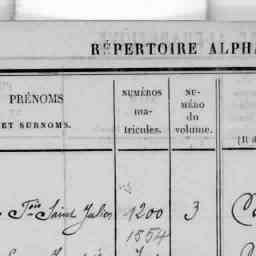 RÉPERTOIRE ALPHA
PRÉNOMS
ET SURNOMS.
NUMÉROS
ma-
tricules.
NU-
MÉRO
du
volume.
Saint Julien 1200 3
1554